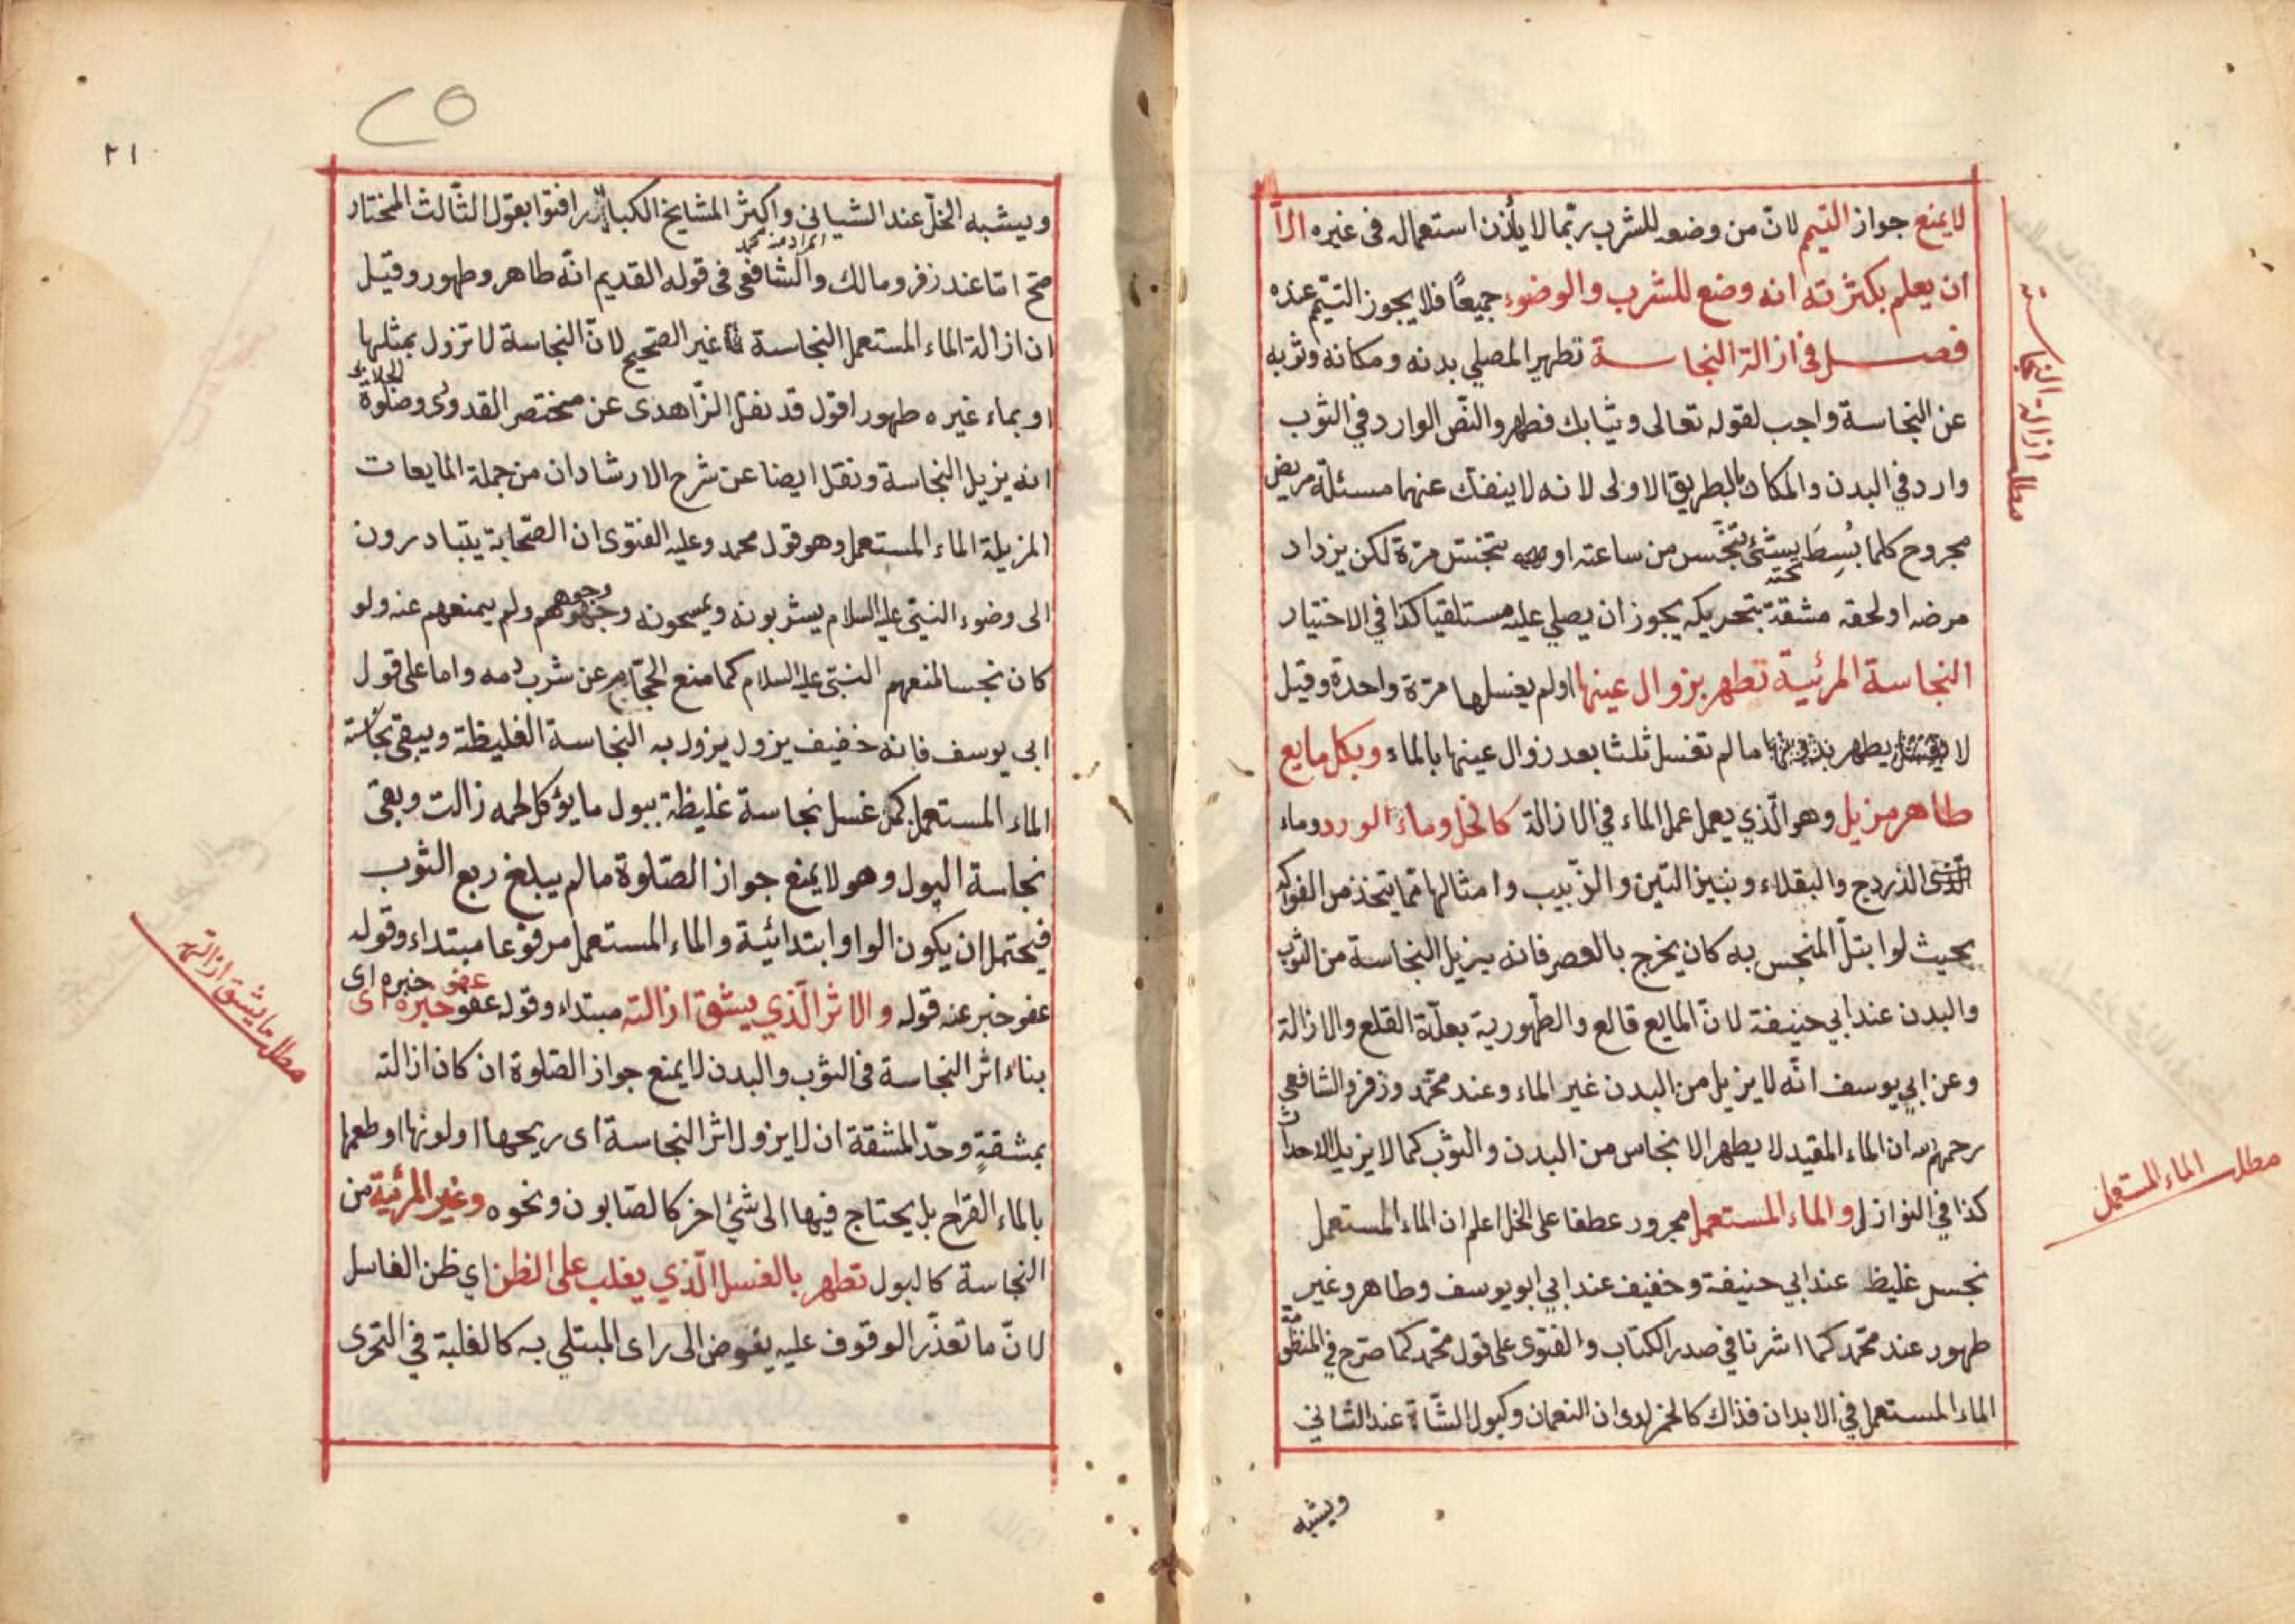 لا يمنع جواز التيمم لانّ من وضعه للشرب ربّما لا يأذن استعماله فى غيره الّا
ان يعلم بكثرته انه وضع للشرب والوضوء جميعًا فلا يجوز التيمّم عنده
فصل فى ازالة النجاسة تطهير المصلي بدنه ومكانه وثوبه
عن النجاسة واجب لقوله تعالى وثيابك فطهر والنّص الوارد في الثوب
وارد في البدن والمكان بالطريق الاولى لانه لا ينفك عنهما مسئلة مريض
مجروح كلما بُسِطَ تحته شئ تنجّس من ساعته او تنجّس مرّة لكن يزداد
مرضه او لحقه مشقة بتحريكه يجوز ان يصلي عليه مستلقيا كذا في الاختيار
النجاسة المرئية تطهر بزوال عينها اولم يغسلها مرّة واحدة وقيل
لا يطهر ما لم تغسل ثلثا بعد زوال عينها بالماء وبكل مايع
طاهر مزيل وهو الّذي يعمل عمل الماء في الازالة كالخل وماء الورد وماء
الذردج والبقلاء ونبيز التين والزّبيب وامثالها ممّا يتخذ من الفواكه
بحيث لو ابتلّ المنجس به كان يخرج بالعصر فانه يزيل النجاسة من الثوب
والبدن عند ابي حنيفة لانّ المايع قالع والطّهورية بعلّة القلع والازالة
وعن ابي يوسف انّه لا يزيل من البدن غير الماء وعند محمّد وزفر والشافعي
رحمهم الله ان الماء المقيد لا يطهر الانجاس من البدن والثوب كما لا يزيل الاحداث
كذا في النوازل والماء المستعمل مجرور عطفا على الخل اعلم ان الماء المستعمل
نجس غليظ عند ابي حنيفة وخفيف عند ابي ابو يوسف وطاهر وغير
طهور عند محمّد كما اشرنا في صدر الكتاب والفتوى على قول محمّد كما صرّح في المنظّمة
الماء المستعمل في الابدان فذاك كالخمر لدى النعمان وكبول الشّاة عند الثاني
ويشبه
مطلب ازالة النجاسة
مطلب الماء المستعمل
٢٥
٢١
ويشبه الخلّ عند الشيباني واكثر المشايخ الكبار افتوا بقول الثّالث المختار
المراد منه محمد
صح امّا عند زفر ومالك والشافعى فى قوله القديم انّه طاهر وطهور وقيل
ان ازالة الماء المستعمل النجاسة غير الصّحيح لانّ النجاسة لا تزول بمثلها
او بماء غيره طهور اقول قد نقل الزّاهدى عن مختصر القدورى وصلوة الجلابي
انه يزيل النجاسة ونقل ايضا عن شرح الارشاد ان من جملة المايعات
المزيلة الماء المستعمل وهو قول محمد وعليه الفتوى ان الصّحابة يتبادرون
الى وضوء النبىّ عليه السلام يشربونه ويمسحونه وجوههم ولم يمنعهم عنه ولو
كان نجسا لمنعهم النبىّ عليه السلام كما منع الحجّام عن شرب دمه واما على قول
ابى يوسف فانه خفيف يزول يزول به النجاسة الغليظة ويبقى نجاسة
الماء المستعمل كمن غسل نجاسة غليظة ببول ما يؤكل لحمه زالت وبقى
نجاسة البول وهو لا يمنع جواز الصّلوة ما لم يبلغ ربع الثوب
فيحتمل ان يكون الواو ابتدائية والماء المستعمل مرفوعا مبتداء وقوله
عفو خبر عنه قوله والاثر الّذي يشقّ ازالته مبتداء وقوله عفو خبره اى
عفو خبره اى
بناء اثر النجاسة فى الثوب والبدن لا يمنع جواز الصّلوة ان كان ازالته
بمشقةٍ وحدّ المشقة ان لا يزول اثر النجاسة اى ريحها او لونها او طعمها
بالماء القراح بل يحتاج فيها الى شئ اخر كالصّابون ونحوه وغير المرئية من
النجاسة كالبول تطهر بالغسل الّذي يغلب على الظن اي ظن الغاسل
لانّ ما تعذّر الوقوف عليه يفوض الى راى المبتلي به كالغلبة في التحرى
مطلب ما يشق ازالته